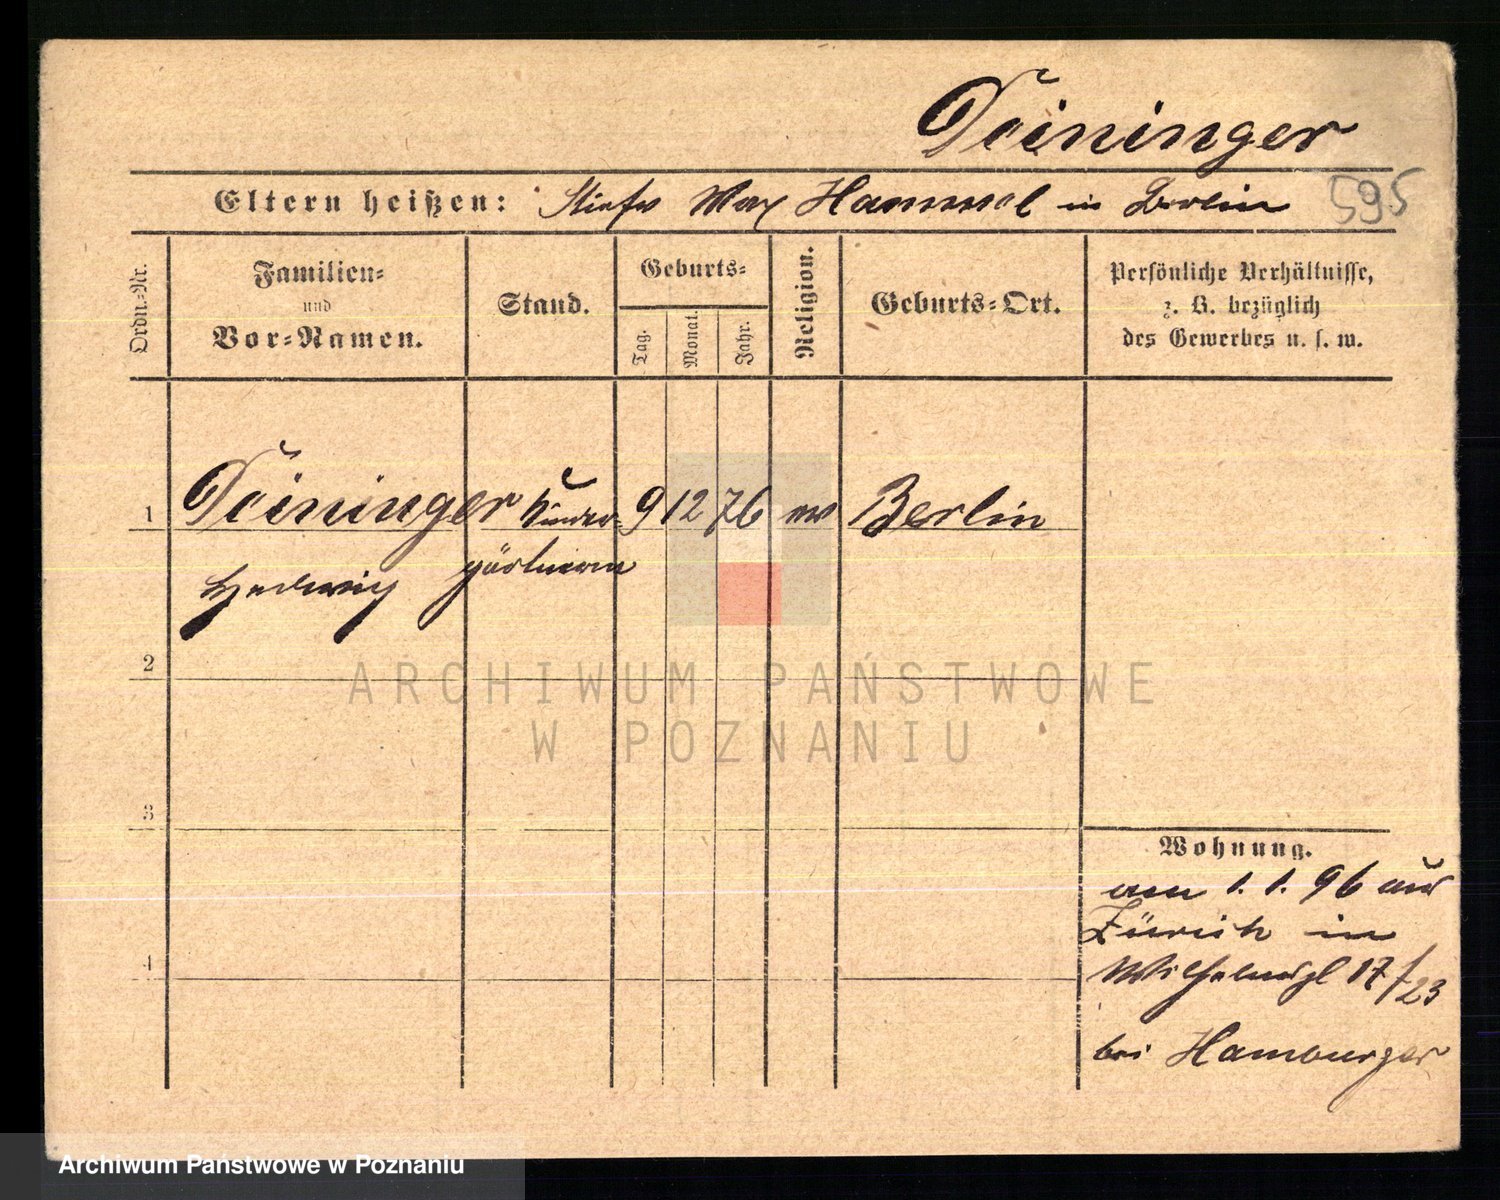 Deininger
Eltern heißen: Stiefv Max Hammel in Berlin 595
Ordn.=Nr.
Familien=
und
Vor=Namen.
Stand.
Geburts=
Tag.
Monat.
Jahr.
Religion.
Geburts=Ort.
Persönliche Verhältnisse,
z. B. bezüglich
des Gewerbes u. s. w.
1 Deininger Kinder= 9 12 76 Berlin
Hedwig gärtnerin
2
ARCHIWUM PAŃSTWOWE
W POZNANIU
3
4
Wohnung.
am 1. 1. 96 aus
Zürich in
Wilhelmspl 17/23
bei Hamburger
Archiwum Państwowe w Poznaniu